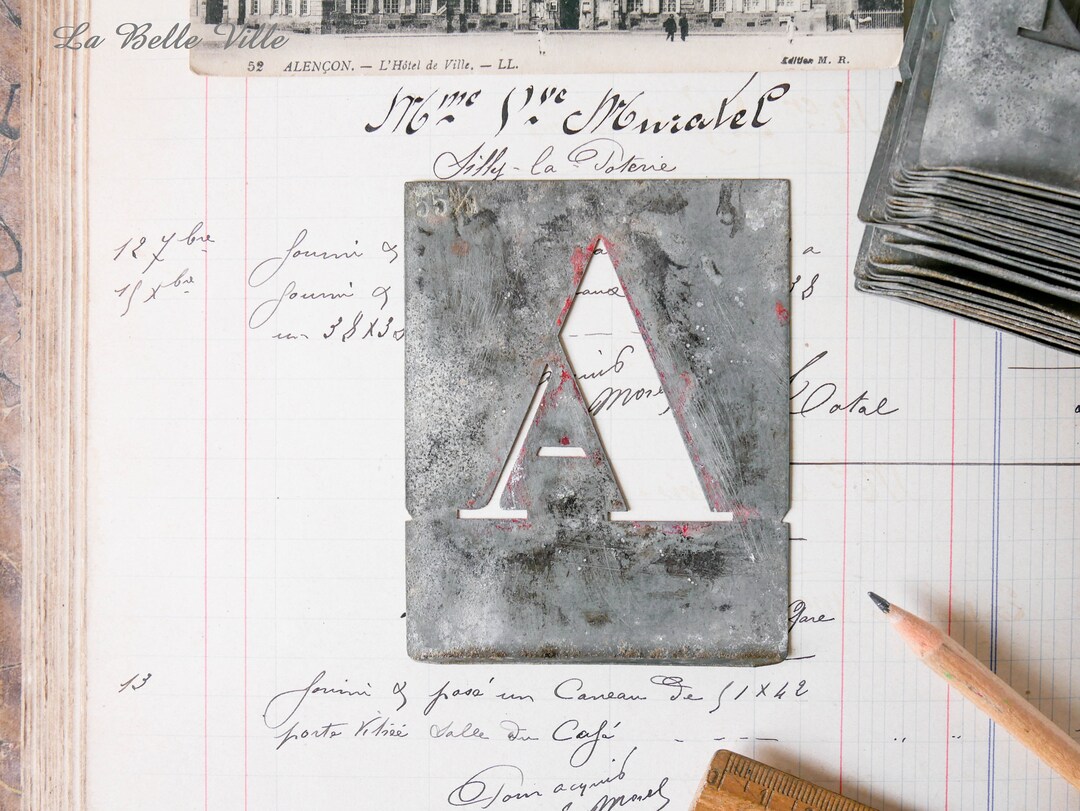 La Belle Ville
52 ALENÇON. — L'Hôtel de Ville. — LL. Édition M. R.
Mme Vve Muratel
Silly-la Poterie
55
12 7bre fourni & a
15 Xbre fourni & 38
un 38X3
acquis
Morel Total
A
Gare
13 fourni & posé un Carreau De 51X42
porte Vitrée Salle Du Café
Pour acquis
Morel